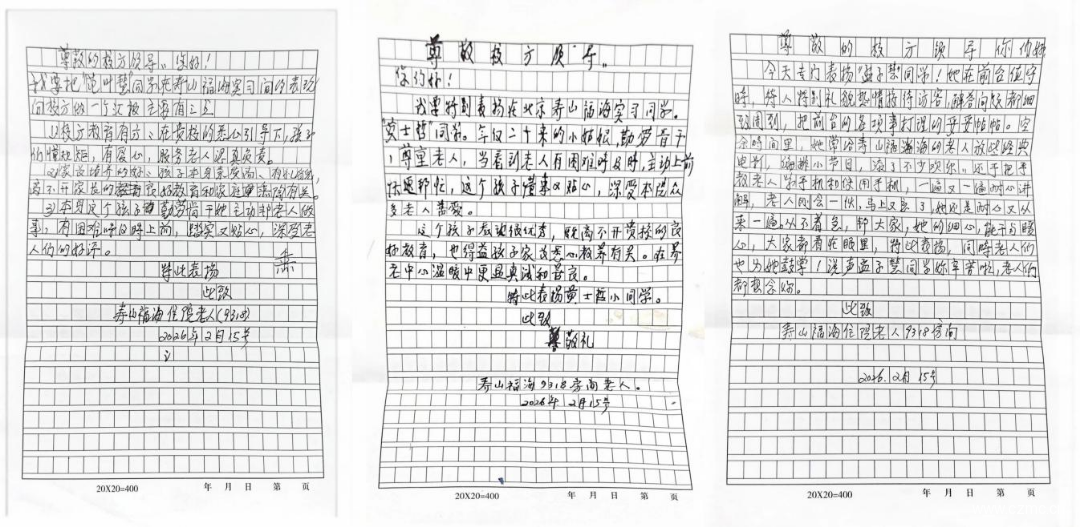 尊敬的校方领导。您好！
同学在寿山福海实习间的表现
向校方
(1)校方教育有方：在贵校的悉心引导下，孩子
们懂规矩，有爱心，服务老人认真负责。
(2)家长培养的好：孩子本身素质高、
离不开家长的良好教育和家庭有关。
(3)本身这个孩子勤劳肯干她主动帮老人做
事，有困难时及时上前，踏实又贴心，深受老
人们的好评。
特此表扬
此致
寿山福海住院老人(9318)
2026年2月15号
20X20=400 年 月 日 第 页
尊敬校方领导。
您们好！
我要特别表扬在北京寿山福海实习同学。
"黄士哲"同学。年仅二十来的小姑娘，勤劳肯干
，尊重老人，当看到老人有困难时及时，主动上前
帮忙，这个孩子懂事又贴心，深受本院众
多老人喜爱。
这个孩子表现很优秀，既离不开贵校的良
好教育，也得益孩子家长悉心教养有关。在养
老中心温暖中更显真诚和善良。
特此表扬黄士哲小同学。
此致
尊敬礼
寿山福海9318房间老人。
2026年 2月15号
20X20=400 年 月 日 第 页
尊敬的校方领导你们好
今天专门表扬"孟子慧"同学！她在前台值守
时，待人特别礼貌热情接待访客，解答问题都细
致周到，把前台的各项事打理的妥妥帖帖。空
余时间里，她曾给寿山福海的老人放些经典
电影，编排小节目，添了不少欢乐。还手把手
教老人用手机和使用手机，一遍又一遍耐心讲
解，老人刚会一伙，马上又忘了，她还是耐心又从
来一遍。从不着急，帮大家，她的细心，能干与暖
心，大家都看在眼里，特此表扬，同时老人们
也为她鼓掌！说声孟子慧同学你辛苦啦，老人们
都想念你。
此致
寿山福海住院老人9318房间
2026.2月15号
20X20=400 年 月 日 第 页